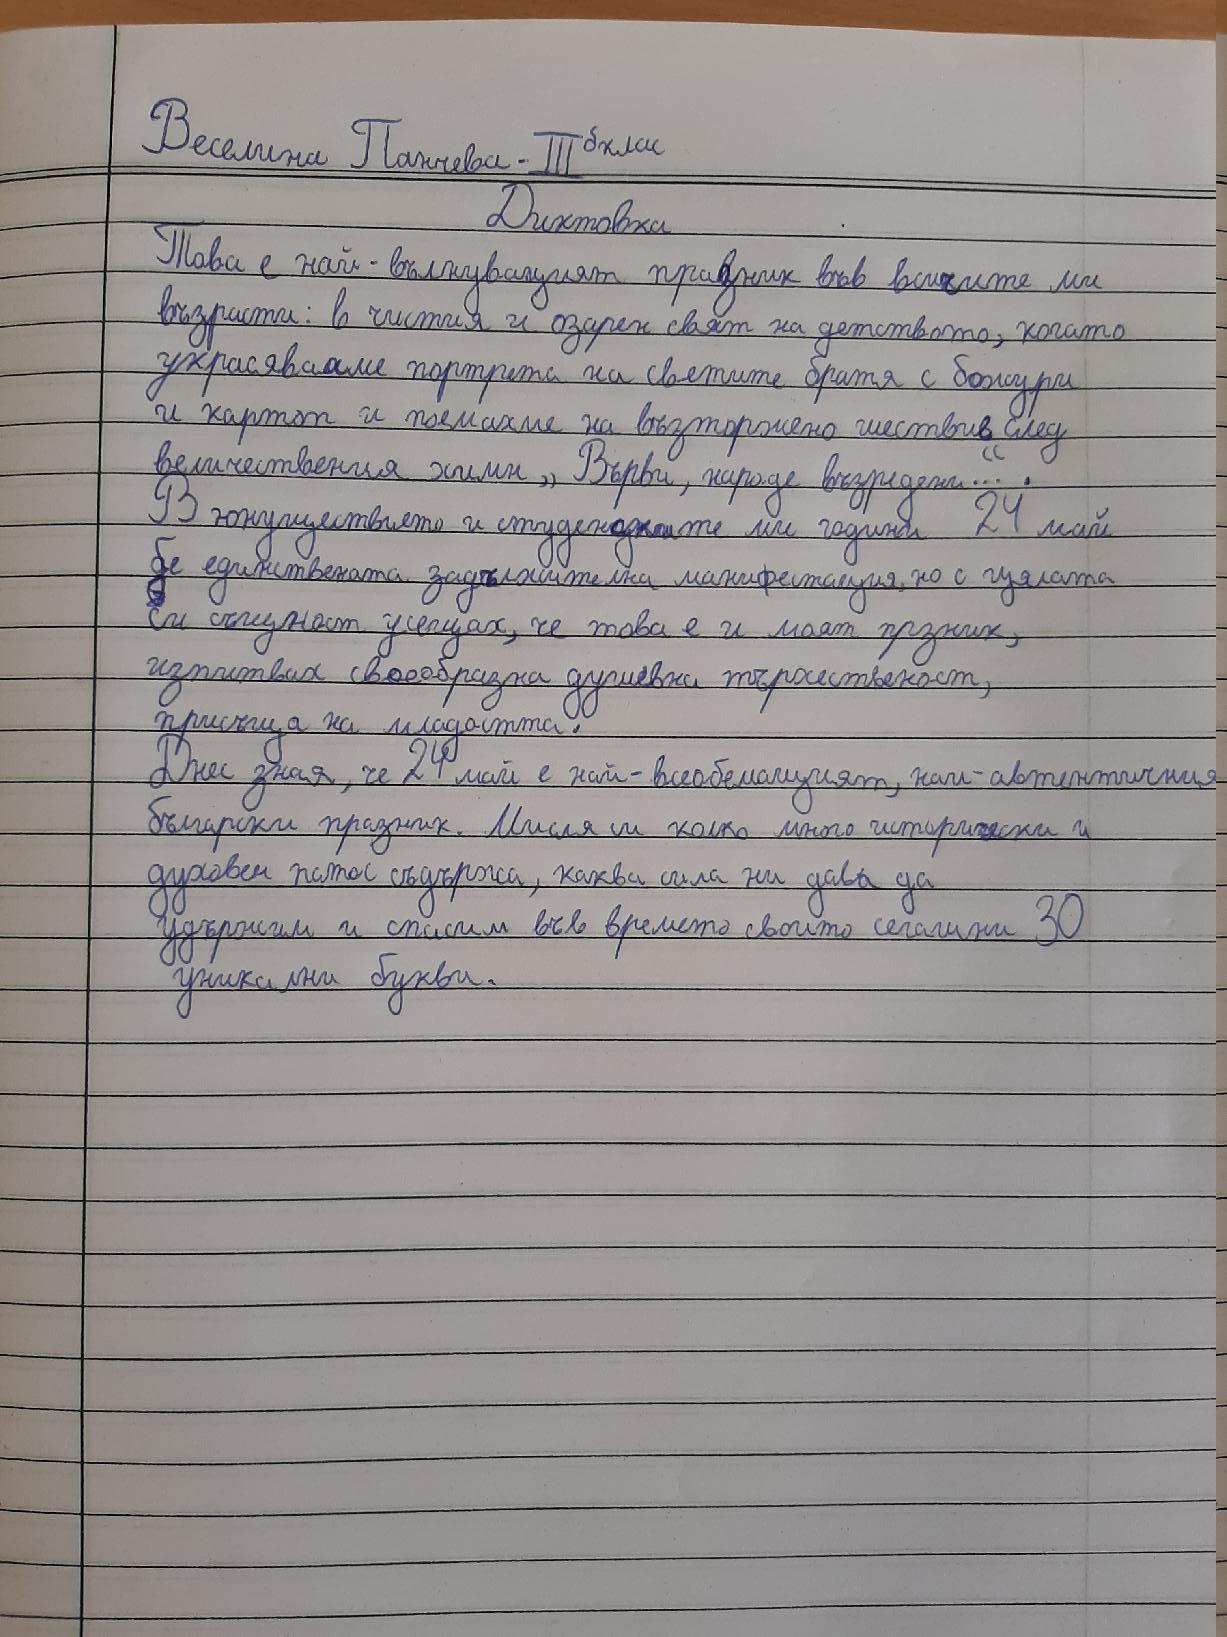 Веселина Панчева - III б клас
Диктовка
Това е най-вълнуващият празник във всичите ми
възрасти: в чистия и озарен свят на детството, когато
украсявааме портрета на светите братя с божури
и картоп и поемахме на възторжено шествие след
величествения химн „Върви, народе възродени...“.
В юнушеството и студентските ми години 24 май
бе единствената задължителна манифестация, но с цялата
си същност усещах, че това е и моят прзник,
изпитвах своеобразна душевна тържественост,
присъща на младостта.
Днес зная, че 24 май е най-всеобемащият, най-автентичния
български празник. Мисля си колко много исторически и
духовен патос съдържа, каква сила ни дава да
удържим и спасим във времето своито сегашни 30
уникални букви.